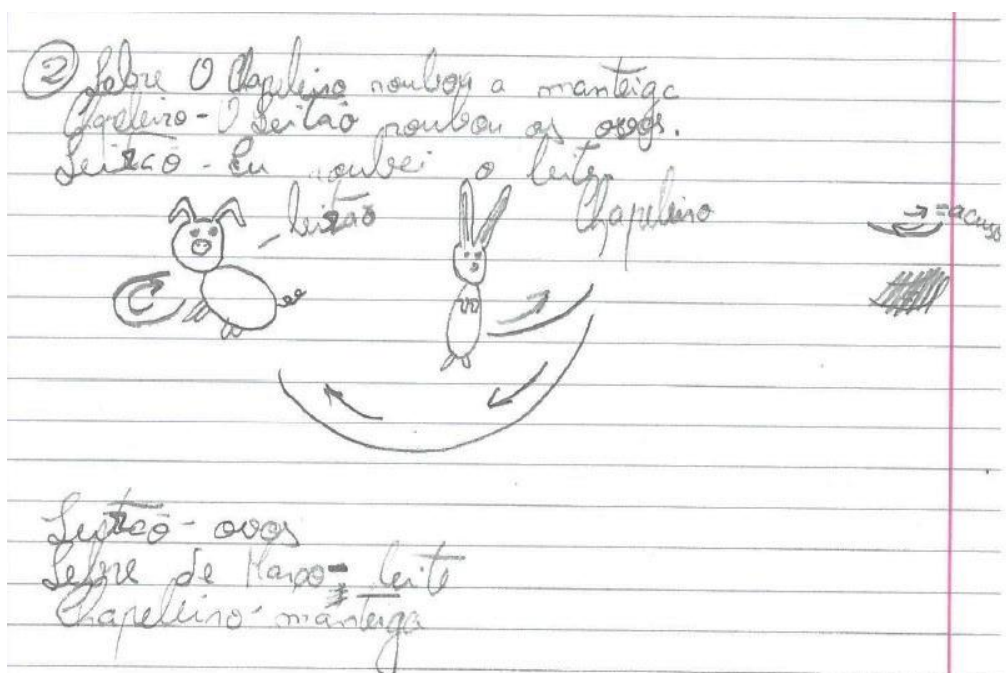 ② Lebre O Chapeleiro roubou a manteiga
Chapeleiro - O Leitão roubou os ovos.
Leitão - Eu roubei o leite.
leitão
Chapeleiro
→ = acusa
Leitão - ovos
Lebre de Março - leite
Chapeleiro - manteiga